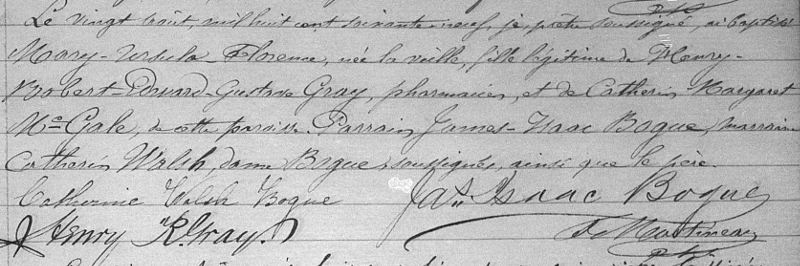 Le vingt août, mil huit cent soixante-neuf, je, prêtre soussigné, ai baptisé
Mary-Ursula-Florence, née la veille, fille légitime de Henry-
Robert-Edouard-Gustave Gray, pharmacien, et de Catherin Margaret
McGale, de cette paroisse. Parrain James-Isaac Bogue, marraine
Catherin Walsh, dame Bogue, soussignés, ainsi que le père.
Catherine Walsh Bogue Jas. Isaac Bogue
Henry R. Gray. F. Martineau
Ptre